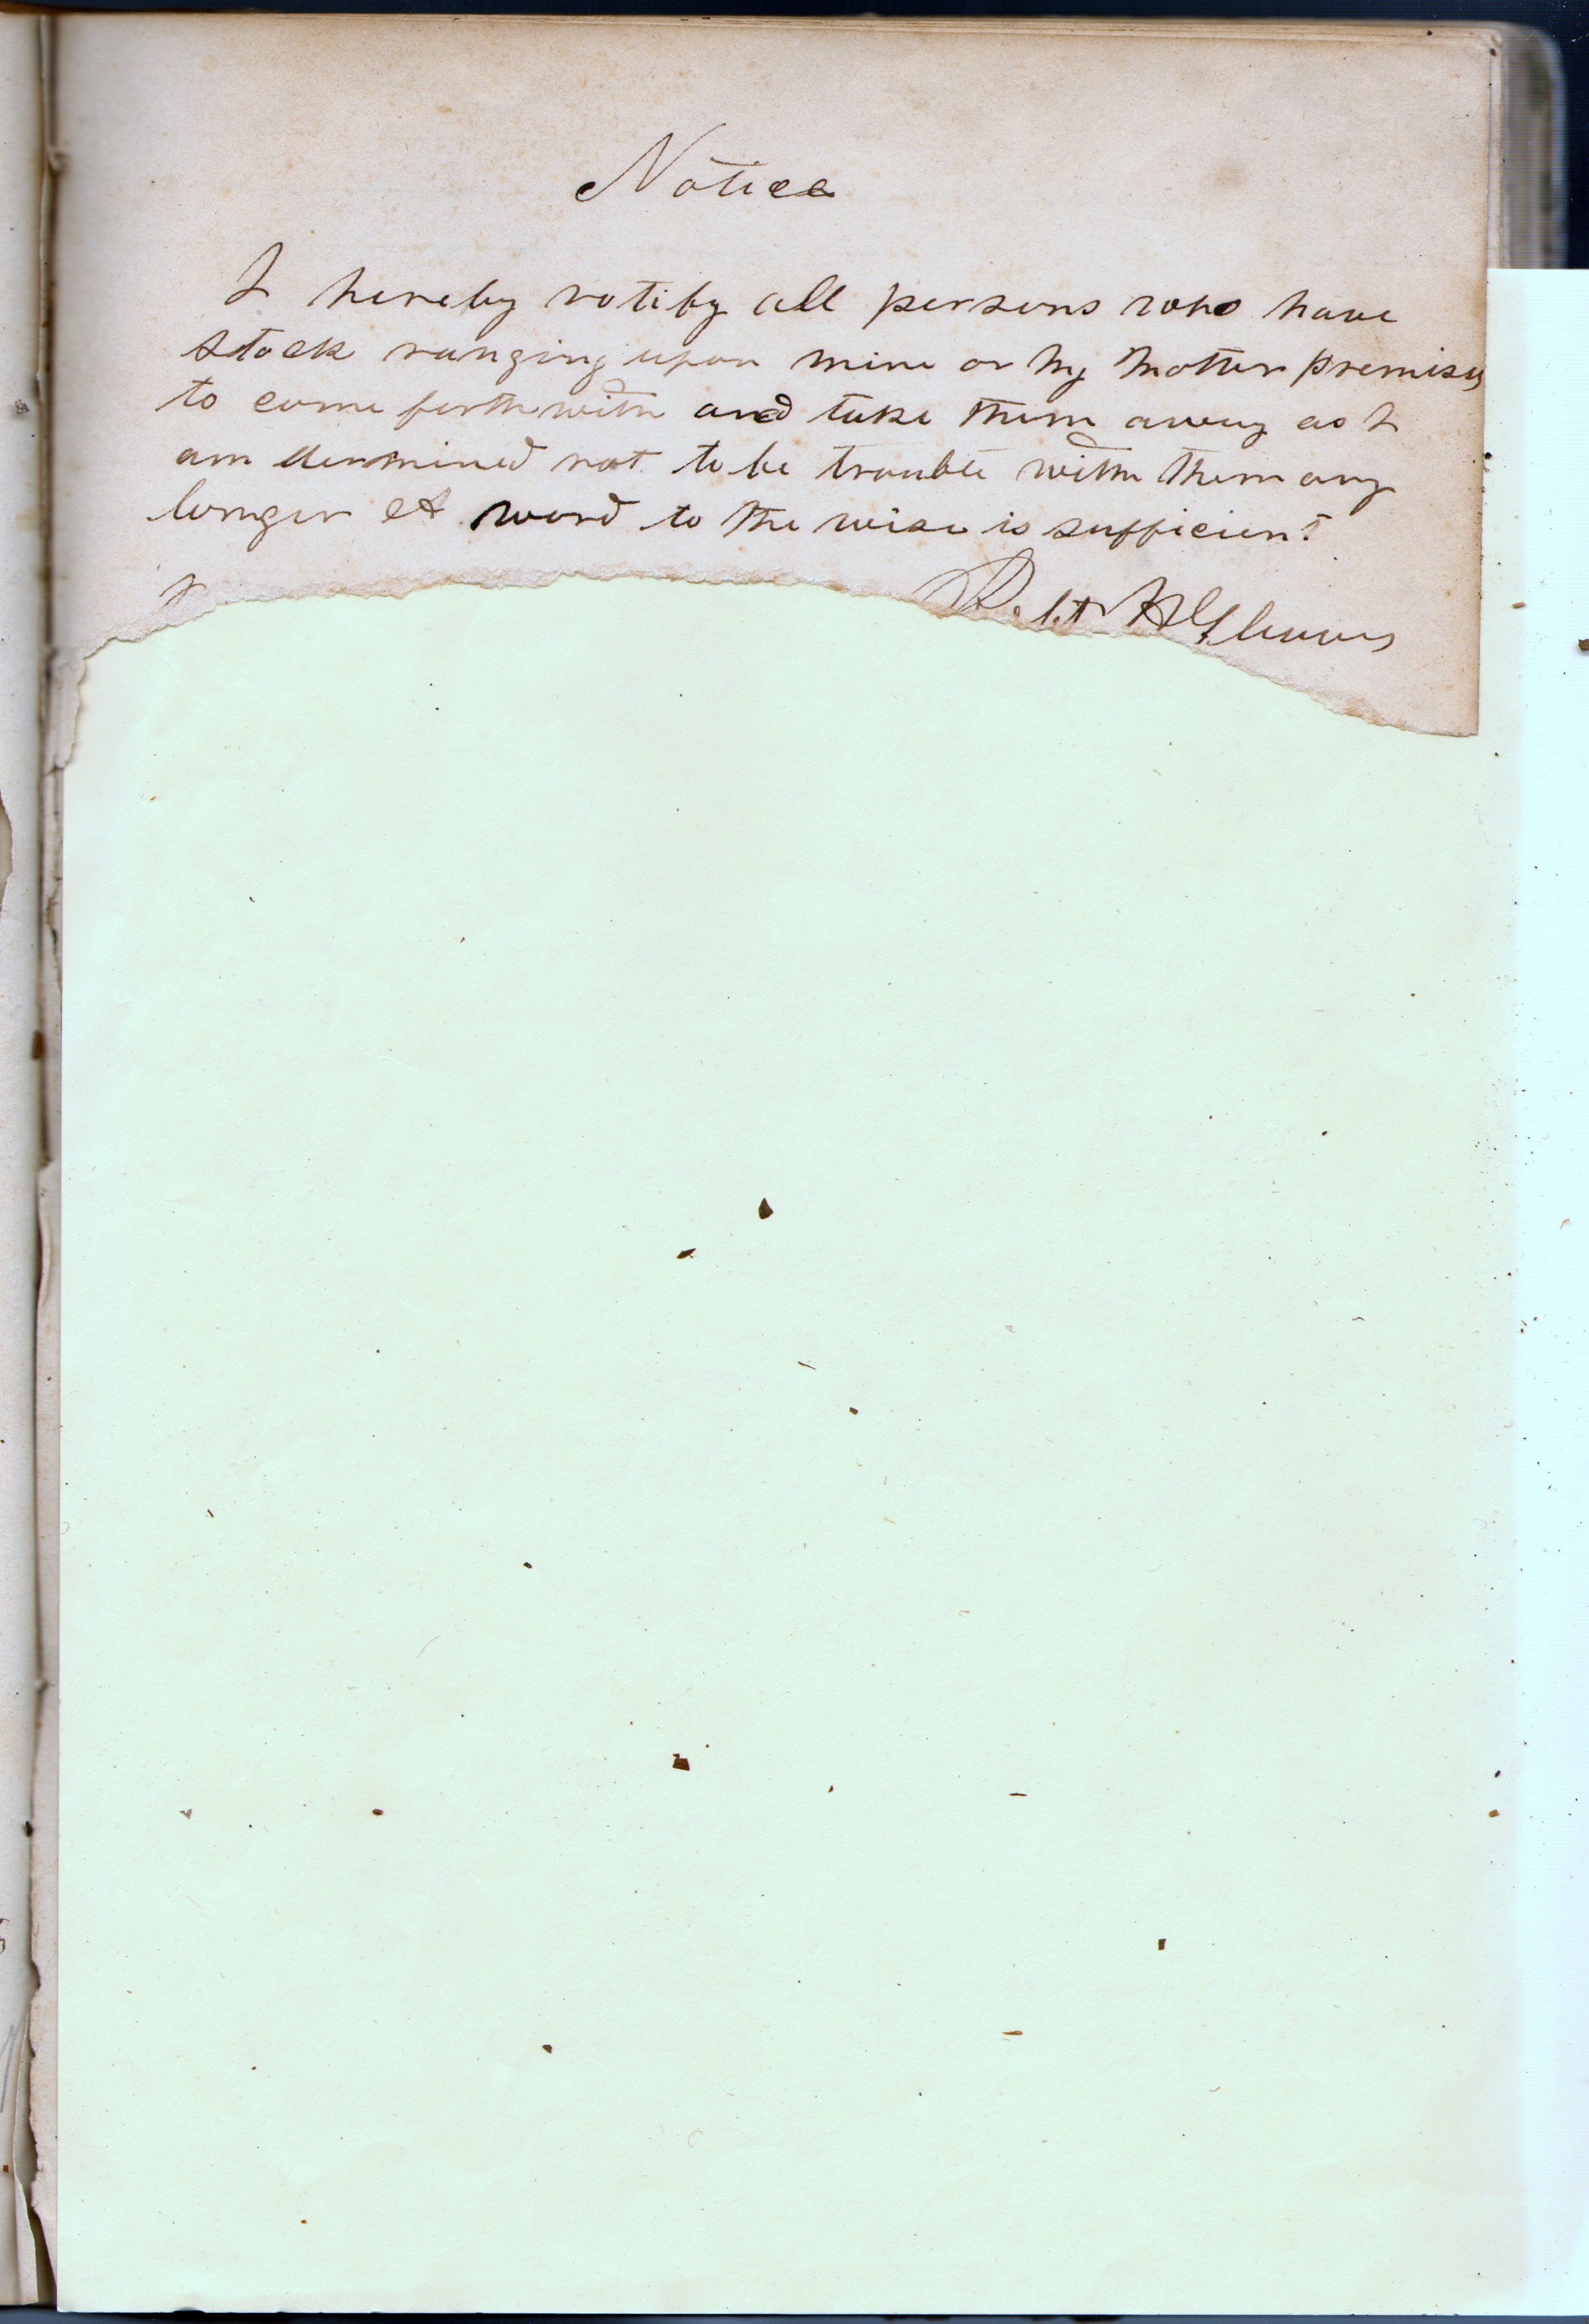 Notice
I hereby notify all persons who have
stock ranging upon mine or my mother premises
to come forthwith and take them away as I
am dermined not to be trouble with them any
longer A word to the wise is sufficient
Robt H